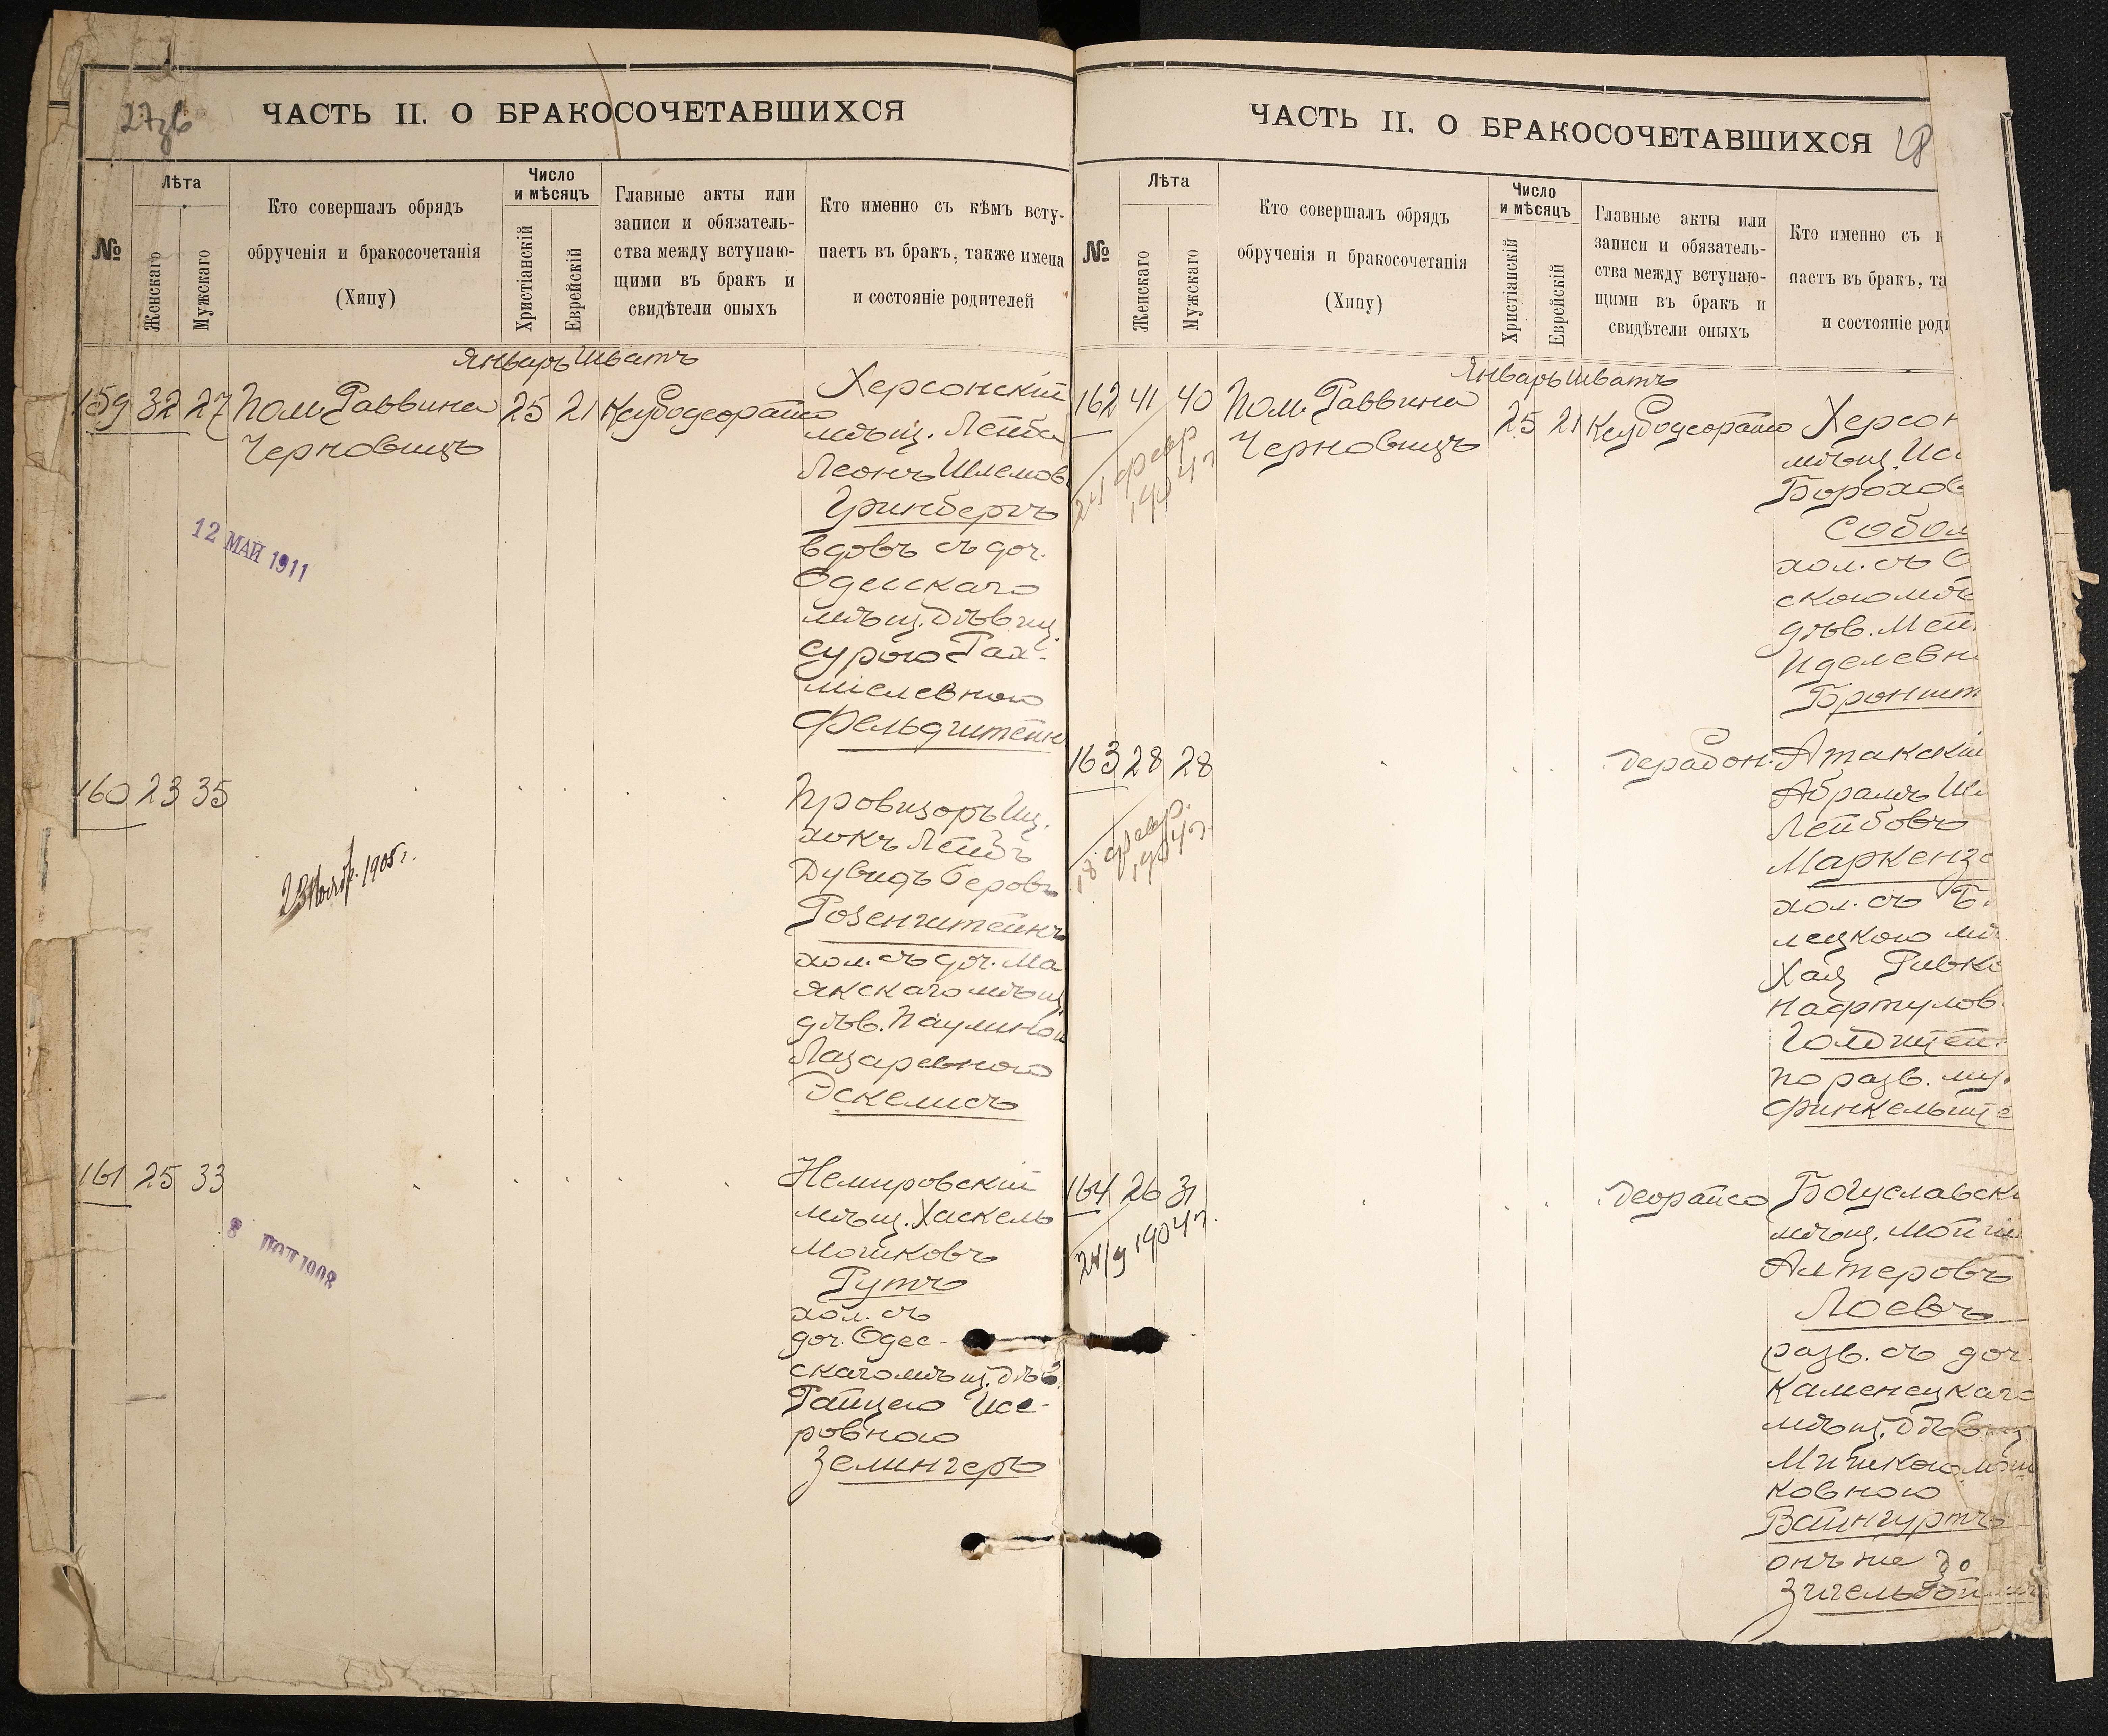 27об
ЧАСТЬ II. О БРАКОСОЧЕТАВШИХСЯ
№
Лѣта
Женскаго
Мужскаго
Кто совершалъ обрядъ
обрученія и бракосочетанія
(Хипу)
Число
и мѣсяцъ
Христіанскій
Еврейскій
Главные акты или
записи и обязатель-
ства между вступаю-
щими въ бракъ и
свидѣтели оныхъ
Кто именно съ кѣмъ всту-
паетъ въ бракъ, также имена
и состояніе родителей
Январь Шватъ
159 32 27 Пом. Раввина 25 21
Черновицъ
Херсонскій
мѣщ. Лейба
Леонъ Шлемов
Гринбергъ
вдовъ съ доч.
Одесскаго
мѣщ. Дѣвиц.
Сурою Рах-
міелевною
Фельдштейн
12 МАЙ 1911
160 23 35
Провизоръ Иц-
хокъ Лейбъ
Дувидъ Беровъ
Розенштейнъ
хол. съ доч. Ма
якскаго мѣщ
дѣв. Паулиною
Лазаревною
Эскелисъ
23 Ноябр. 1905 г.
161 25 33
Немировскій
мѣщ. Хаскель
Мошковъ
Рутъ
хол. съ
доч. Одес-
скаго мѣщ. дѣв.
Райцею Исе-
ровною
Зелингеръ
8 1908
28
ЧАСТЬ II. О БРАКОСОЧЕТАВШИХСЯ
№
Лѣта
Женскаго
Мужскаго
Кто совершалъ обрядъ
обрученія и бракосочетанія
(Хипу)
Число
и мѣсяцъ
Христіанскій
Еврейскій
Главные акты или
записи и обязатель-
ства между вступаю-
щими въ бракъ и
свидѣтели оныхъ
Кто именно съ к
паетъ въ бракъ, та
и состояніе роди
Январь Шватъ
162 41 40 Пом. Раввина 25 21
Черновицъ
24 февр
1904 г
Херсон
мѣщ. Ис
Борохов
Собол
хол. съ О
скою мѣ
дѣв. Мей
Иделевн
Броншт
163 28 28 дерабон.
18 февр.
1904 г.
Атакскій
Абрамъ Ш
Лейбовъ
Маркенз
хол. съ Б
лецкою мѣ
Хая Ривк
Нафтулов
Голдштей
по разв. му
Финкельште
164 26 31 деорайсо
24/9 1904 г.
Богуславск
мѣщ. Мойш
Алтеровъ
Лоевъ
разв. съ доч
Каменецкаго
мѣщ. дѣвиц
Миткою Мош
ковною
Вайнгуртъ
онъ же до
Зигельбойм